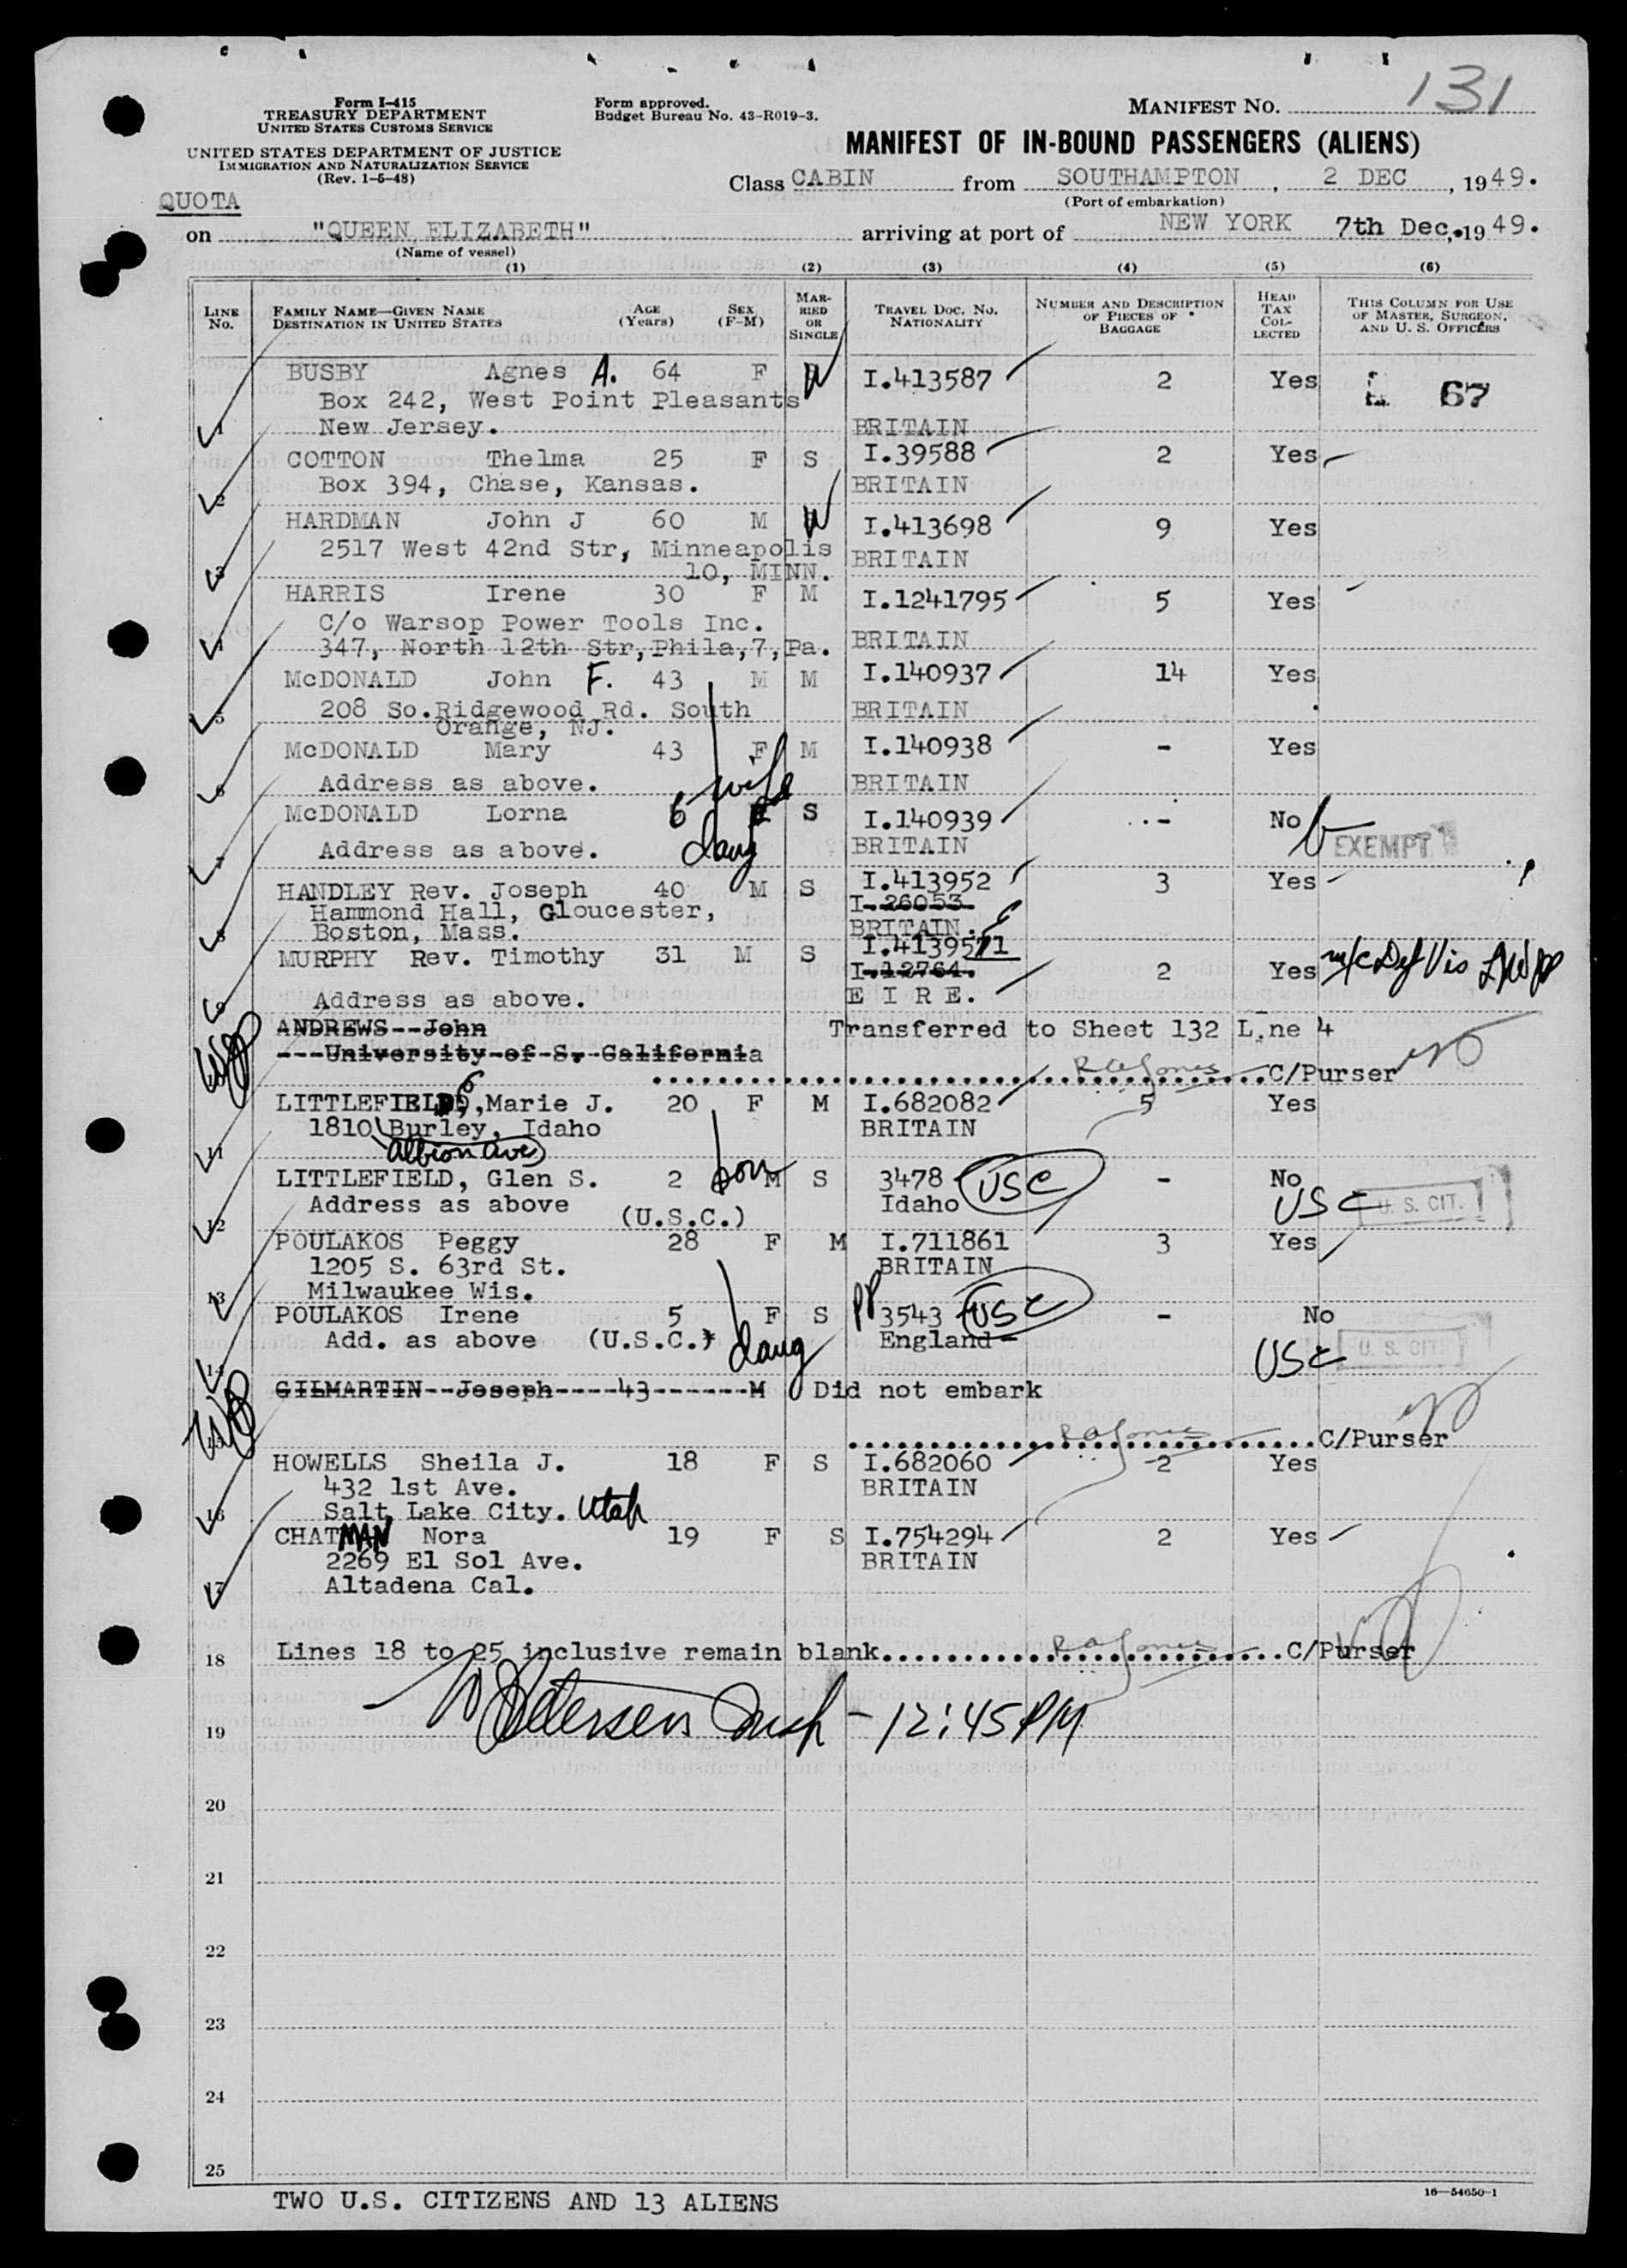 131
Form I-415
TREASURY DEPARTMENT
UNITED STATES CUSTOMS SERVICE
Form approved.
Budget Bureau No. 43-R019-3.
MANIFEST NO.
UNITED STATES DEPARTMENT OF JUSTICE
IMMIGRATION AND NATURALIZATION SERVICE
(Rev. 1-5-48)
MANIFEST OF IN-BOUND PASSENGERS (ALIENS)
Class CABIN from SOUTHAMPTON, 2 DEC, 1949.
(Port of embarkation)
QUOTA
on "QUEEN ELIZABETH" arriving at port of NEW YORK 7th Dec, 1949.
(Name of vessel)
(1) (2) (3) (4) (5) (6)
LINE No. FAMILY NAME—GIVEN NAME DESTINATION IN UNITED STATES AGE (Years) SEX (F-M) MARRIED OR SINGLE TRAVEL DOC. NO. NATIONALITY NUMBER AND DESCRIPTION OF PIECES OF BAGGAGE HEAD TAX COLLECTED THIS COLUMN FOR USE OF MASTER, SURGEON, AND U. S. OFFICERS
BUSBY Agnes A. 64 F W I.413587 2 Yes 67
Box 242, West Point Pleasants
1 New Jersey. BRITAIN
COTTON Thelma 25 F S I.39588 2 Yes
2 Box 394, Chase, Kansas. BRITAIN
HARDMAN John J 60 M W I.413698 9 Yes
2517 West 42nd Str, Minneapolis BRITAIN
3 10, MINN.
HARRIS Irene 30 F M I.1241795 5 Yes
C/o Warsop Power Tools Inc.
4 347, North 12th Str, Phila, 7, Pa. BRITAIN
McDONALD John F. 43 M M I.140937 14 Yes
5 208 So. Ridgewood Rd. South BRITAIN
Orange, NJ.
McDONALD Mary 43 F M I.140938 - Yes
wife
6 Address as above. BRITAIN
McDONALD Lorna 6 F S I.140939 - No
7 Address as above. daug BRITAIN EXEMPT
HANDLEY Rev. Joseph 40 M S I.413952 3 Yes
Hammond Hall, Gloucester, I-26053
8 Boston, Mass. BRITAIN.
MURPHY Rev. Timothy 31 M S I.4139571
I-12764. 2 Yes m/c Def Vis
9 Address as above. E I R E.
ANDREWS--John Transferred to Sheet 132 L.ne 4
---University-of-S.-California
RAJones C/Purser
LITTLEFIELD, Marie J. 20 F M I.682082 5 Yes
1810 Burley, Idaho BRITAIN
11 Albion Ave
LITTLEFIELD, Glen S. 2 son M S 3478 USC - No
Address as above Idaho USC U. S. CIT.
12 (U.S.C.)
POULAKOS Peggy 28 F M I.711861 3 Yes
1205 S. 63rd St. BRITAIN
13 Milwaukee Wis.
POULAKOS Irene 5 F S PP 3543 USC - No
Add. as above (U.S.C.) daug England- U. S. CIT.
14 USC
GILMARTIN--Joseph----43-------M Did not embark
15 RAJones C/Purser
HOWELLS Sheila J. 18 F S I.682060 2 Yes
432 1st Ave. BRITAIN
16 Salt Lake City. Utah
CHATMAN Nora 19 F S I.754294 2 Yes
2269 El Sol Ave. BRITAIN
17 Altadena Cal.
18 Lines 18 to 25 inclusive remain blank RAJones C/Purser
19 Petersen Insp - 12:45 PM
20
21
22
23
24
25
TWO U.S. CITIZENS AND 13 ALIENS
16—54650-1